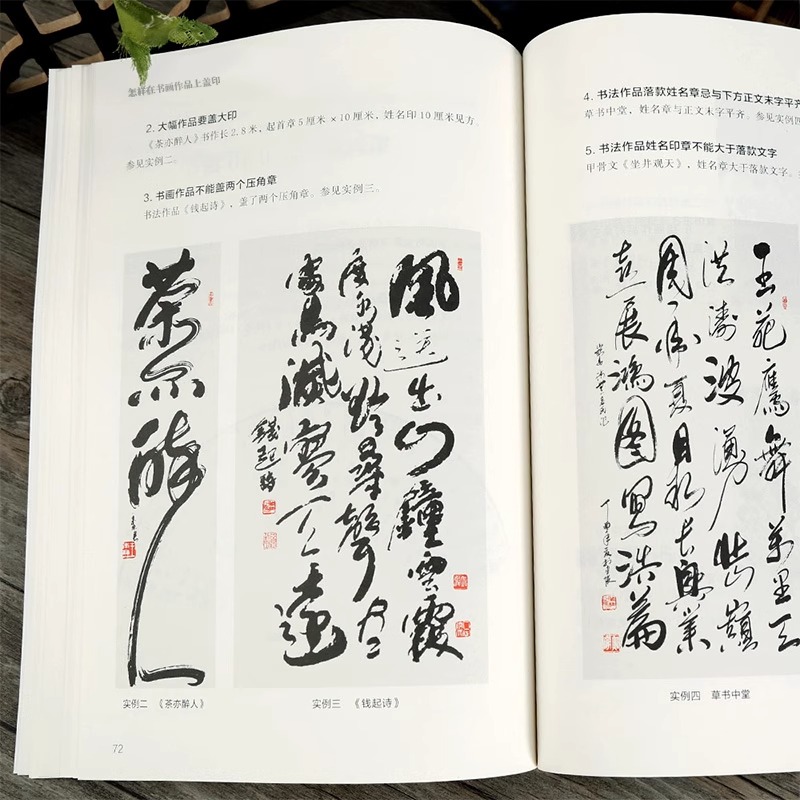 怎样在书画作品上盖印
2. 大幅作品要盖大印
《茶亦醉人》书作长2.8米，起首章5厘米×10厘米，姓名印10厘米见方。
参见实例二。
3. 书画作品不能盖两个压角章
书法作品《钱起诗》，盖了两个压角章。参见实例三。
茶亦醉人
風送出山鐘雲霞
度水淺欲尋聲盡
處鳥滅寥天遠
錢起詩
实例二 《茶亦醉人》
实例三 《钱起诗》
72
4. 书法作品落款姓名章忌与下方正文末字平齐
草书中堂，姓名章与正文末字平齐。参见实例四
5. 书法作品姓名印章不能大于落款文字
甲骨文《坐井观天》，姓名章大于落款文字。
舞萬里
洪濤波湧
喜展鴻圖寫浩篇
实例四 草书中堂